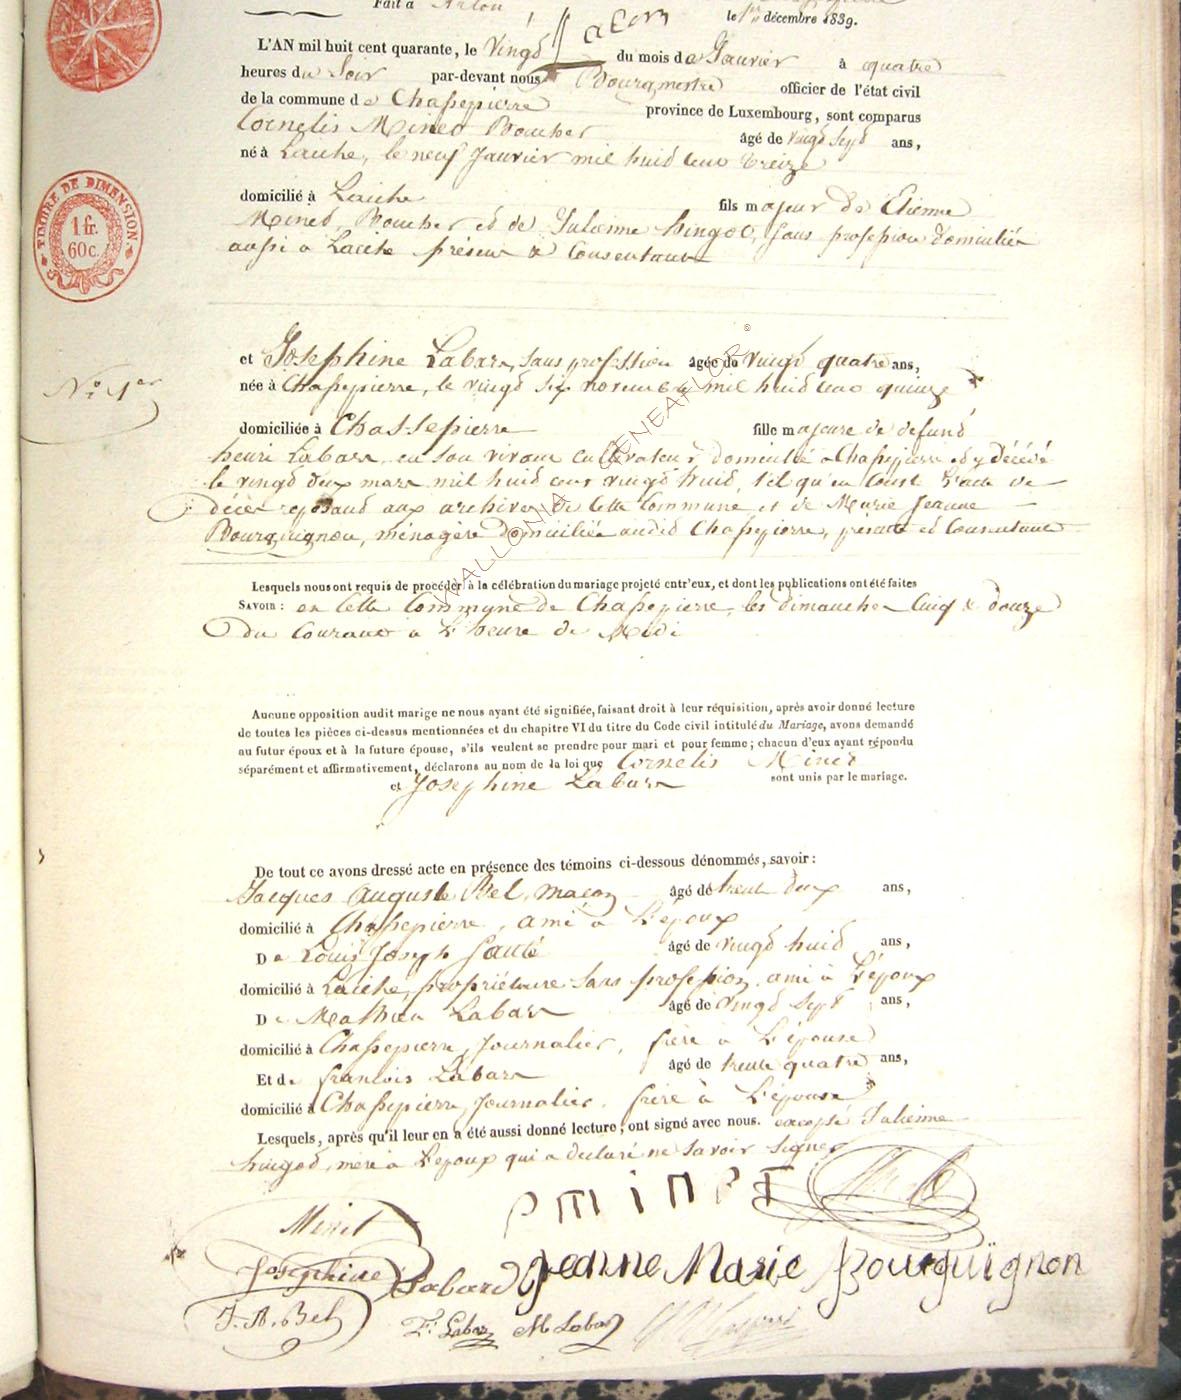 Fait à Arlon, le 1er décembre 1839.
L'AN mil huit cent quarante, le vingt du mois de Janvier à quatre
heures du Soir par-devant nous Bourgmestre officier de l'état civil
de la commune de Chassepierre province de Luxembourg, sont comparus
Cornelis Minet Boucher âgé de vingt sept ans,
né à Laiche, le neuf Janvier mil huit cent treize
domicilié à Laiche fils majeur de Etienne
Minet, Boucher et de Julienne hingot, sans profession domiciliés
aussi à Laiche présens & Consentants
TIMBRE DE DIMENSION.
1 fr.
60 c.
No. 1er
et Josephine Labar, sans profession âgée de vingt quatre ans,
née à Chassepierre, le vingt six novembre mil huit cent quinze
domiciliée à Chassepierre fille majeure de defunt
henri Labar, en son vivant cultivateur domicilié à Chassepierre et y décédé
le vingt deux mars mil huit cent vingt huit, tel qu'en conste l'acte de
décès reposant aux archives de cette Commune et de Marie Jeanne
Bourguignon, ménagère domiciliée audit Chassepierre, présente et Consentante
Lesquels nous ont requis de procéder à la célébration du mariage projeté entr'eux, et dont les publications ont été faites
SAVOIR : en cette Commune de Chassepierre, les dimanches Cinq & douze
du Courant à l'heure de Midi
Aucune opposition audit marige ne nous ayant été signifiée, faisant droit à leur réquisition, après avoir donné lecture
de toutes les pièces ci-dessus mentionnées et du chapitre VI du titre du Code civil intitulé du Mariage, avons demandé
au futur époux et à la future épouse, s'ils veulent se prendre pour mari et pour femme ; chacun d'eux ayant répondu
séparément et affirmativement, déclarons au nom de la loi que Cornelis Minet
et Josephine Labar sont unis par le mariage.
De tout ce avons dressé acte en présence des témoins ci-dessous dénommés, savoir :
Jacques Auguste Bel, maçon âgé de trente deux ans,
domicilié à Chassepierre, ami à l'époux
De Louis Joseph Santé âgé de vingt huit ans,
domicilié à Laiche, propriétaire sans profession, ami à l'époux
De Mathieu Labar âgé de vingt sept ans,
domicilié à Chassepierre, Journalier, frère à l'épouse
Et de francois Labar âgé de trente quatre ans,
domicilié à Chassepierre, Journalier, frère à l'épouse
Lesquels, après qu'il leur en a été aussi donné lecture, ont signé avec nous. excepté Julienne
hingot, mère à l'époux qui a déclaré ne savoir signer
Minet
Josephine Labar Jeanne Marie Bourguignon
J. A. Bel F. Labar M Labar
© WALLONIA GENEALOR